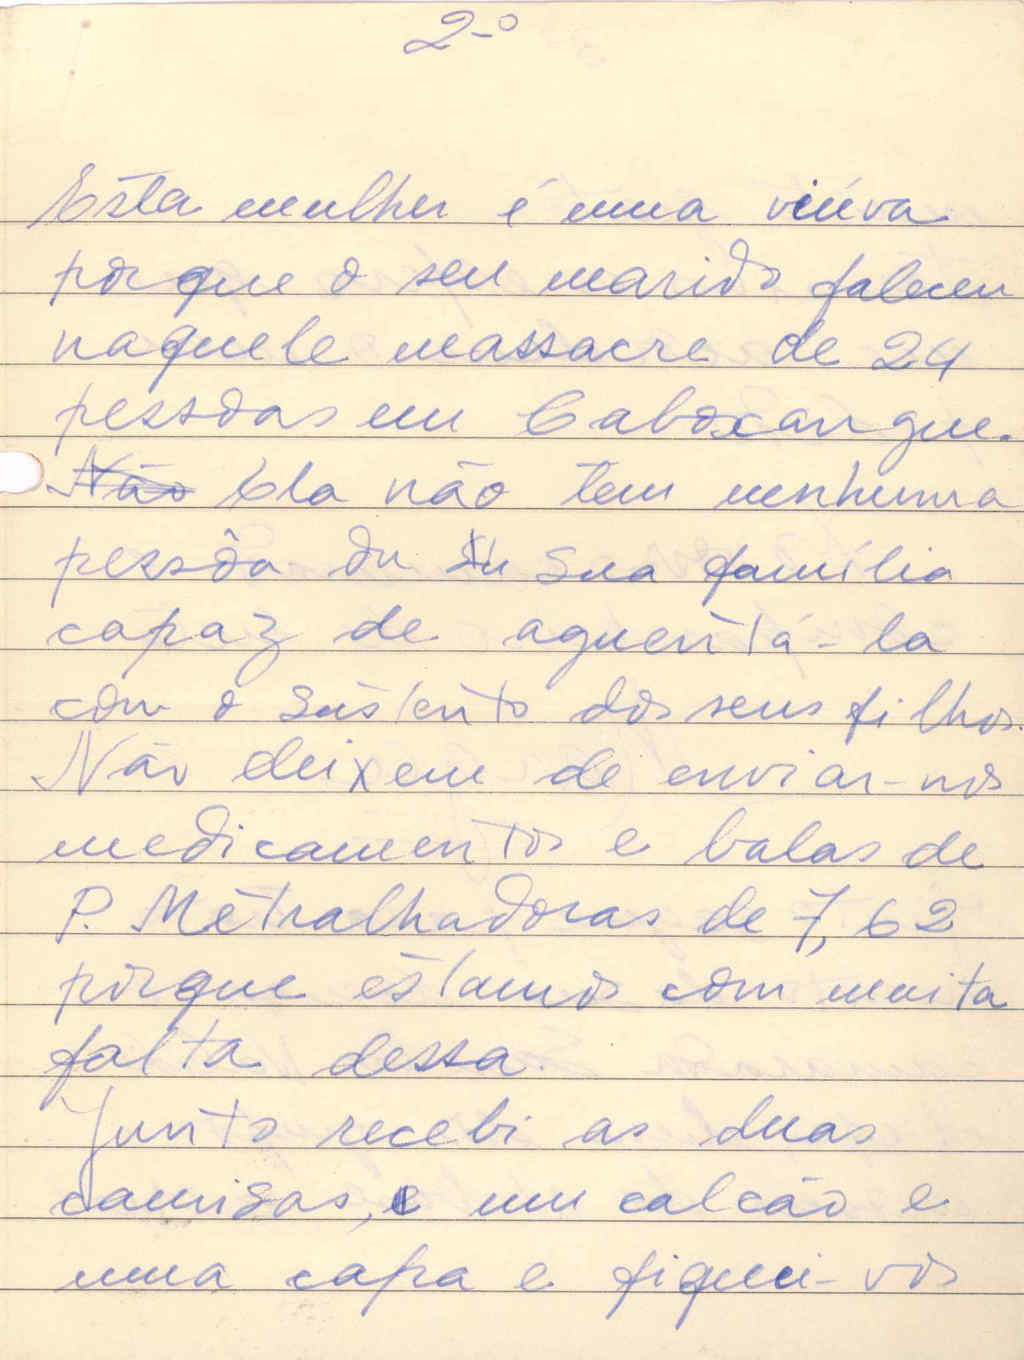 2-º
Esta mulher é uma viúva
porque o seu marido faleceu
naquele massacre de 24
pessoas em Caboxangue.
Não Ela não tem nenhuma
pessôa ou su sua família
capaz de aguentá-la
com o sustento dos seus filhos.
Não deixem de enviar-nos
medicamentos e balas de
P. Metralhadoras de 7,62
porque estamos com muita
falta dessa.
Junto recebi as duas
camisas, e um calcão e
uma capa e fiquei-vos